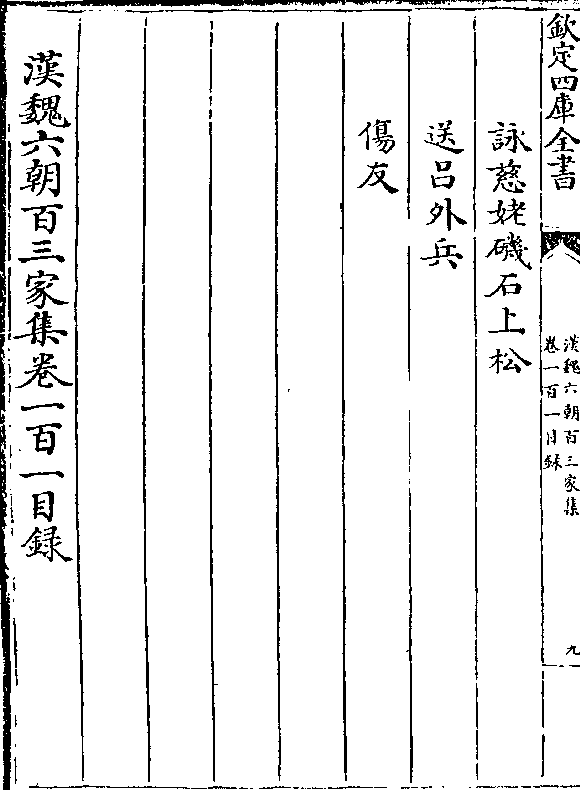 欽定四庫全書
漢魏六朝百三家集
卷一百一目録
九
詠慈姥磯石上松
送呂外兵
傷友
漢魏六朝百三家集卷一百一目録